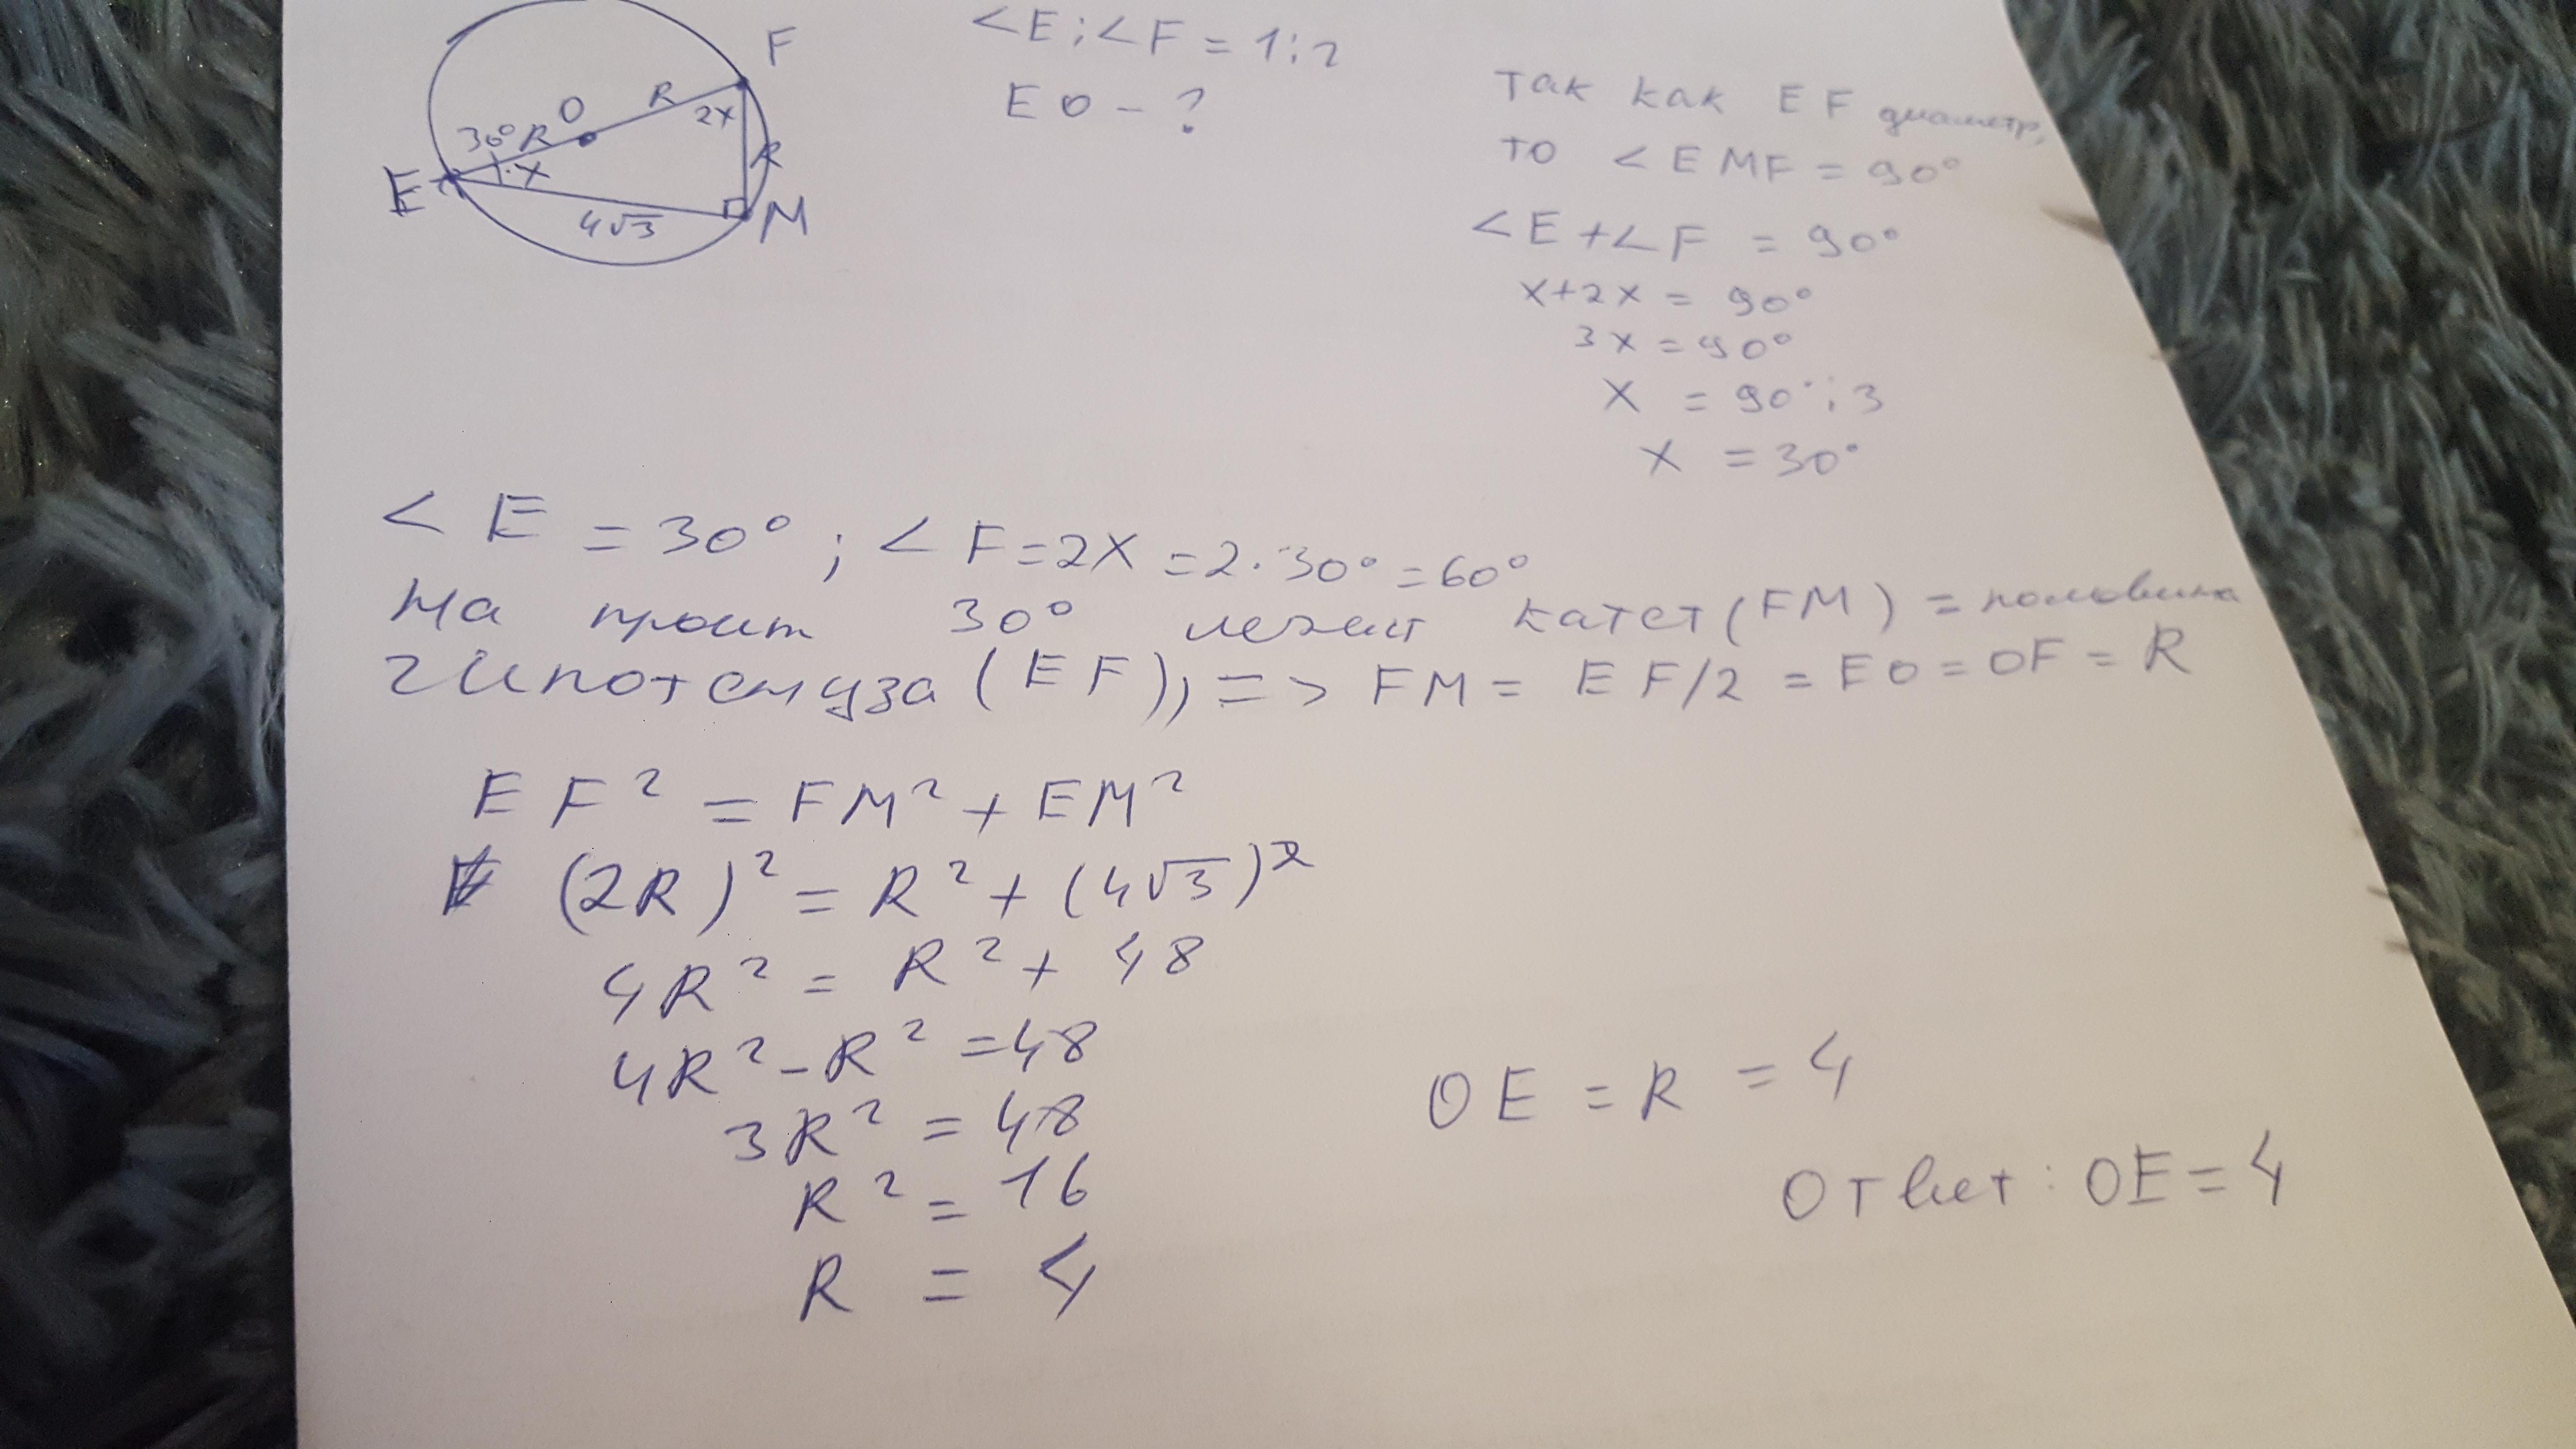 F
O
R
2x
30° R
x
R
E
4√3
M
<E;<F = 1:2
EO - ?
Так как EF диаметр,
то <EMF = 90°
<E+<F = 90°
x+2x = 90°
3x = 90°
x = 90°:3
x = 30°
<E = 30°; <F = 2x = 2·30° = 60°
На проит 30° лежит катет (FM) = половина
гипотенуза (EF), => FM = EF/2 = EO = OF = R
EF² = FM² + EM²
(2R)² = R² + (4√3)²
4R² = R² + 48
4R² - R² = 48
3R² = 48
R² = 16
R = 4
OE = R = 4
Ответ: OE = 4